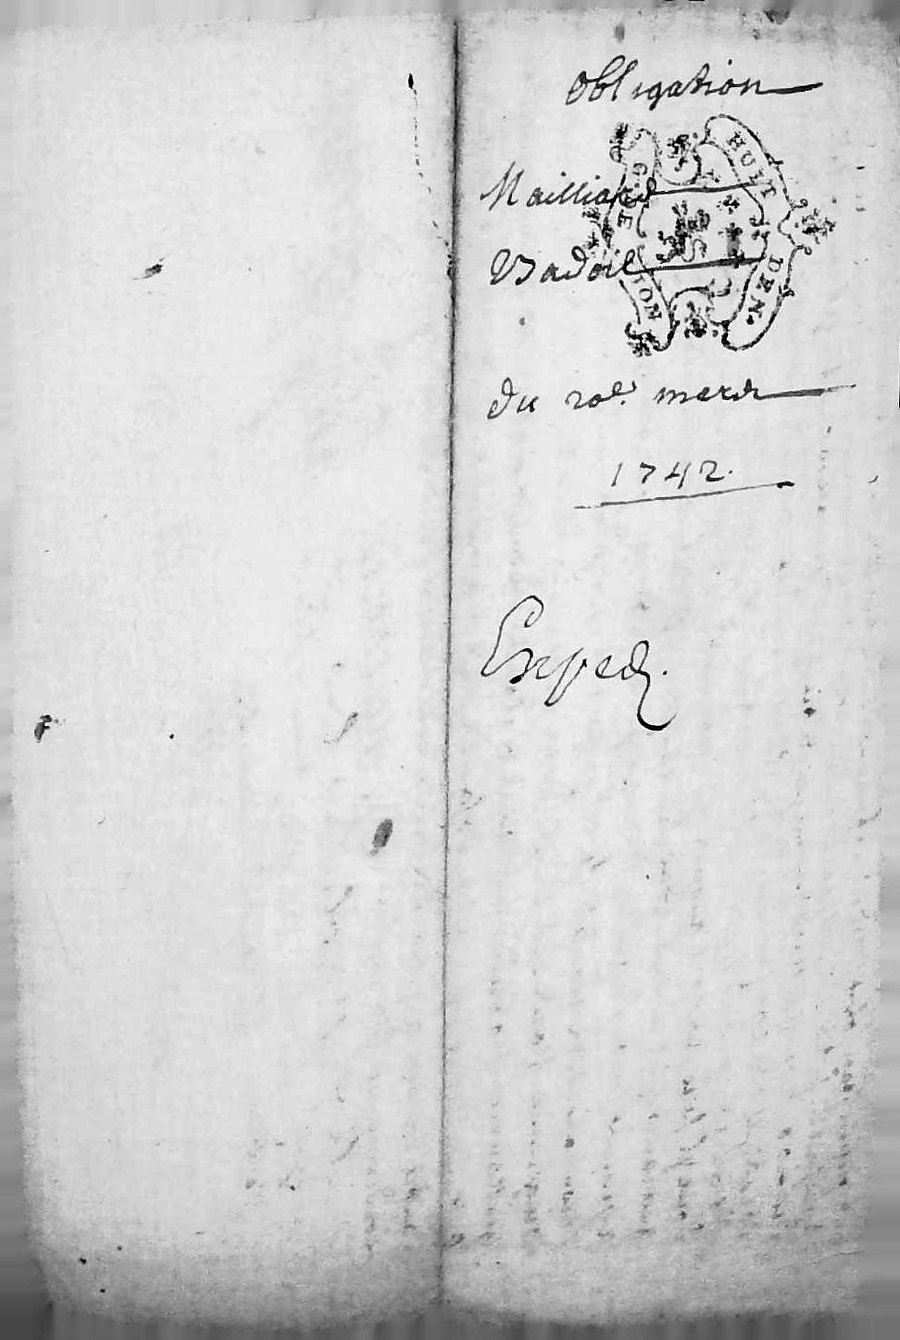 Obligation
Mailliard
Badoil
HUIT DEN.
G. DE LION
du 20e. mars
1742.
Exped.